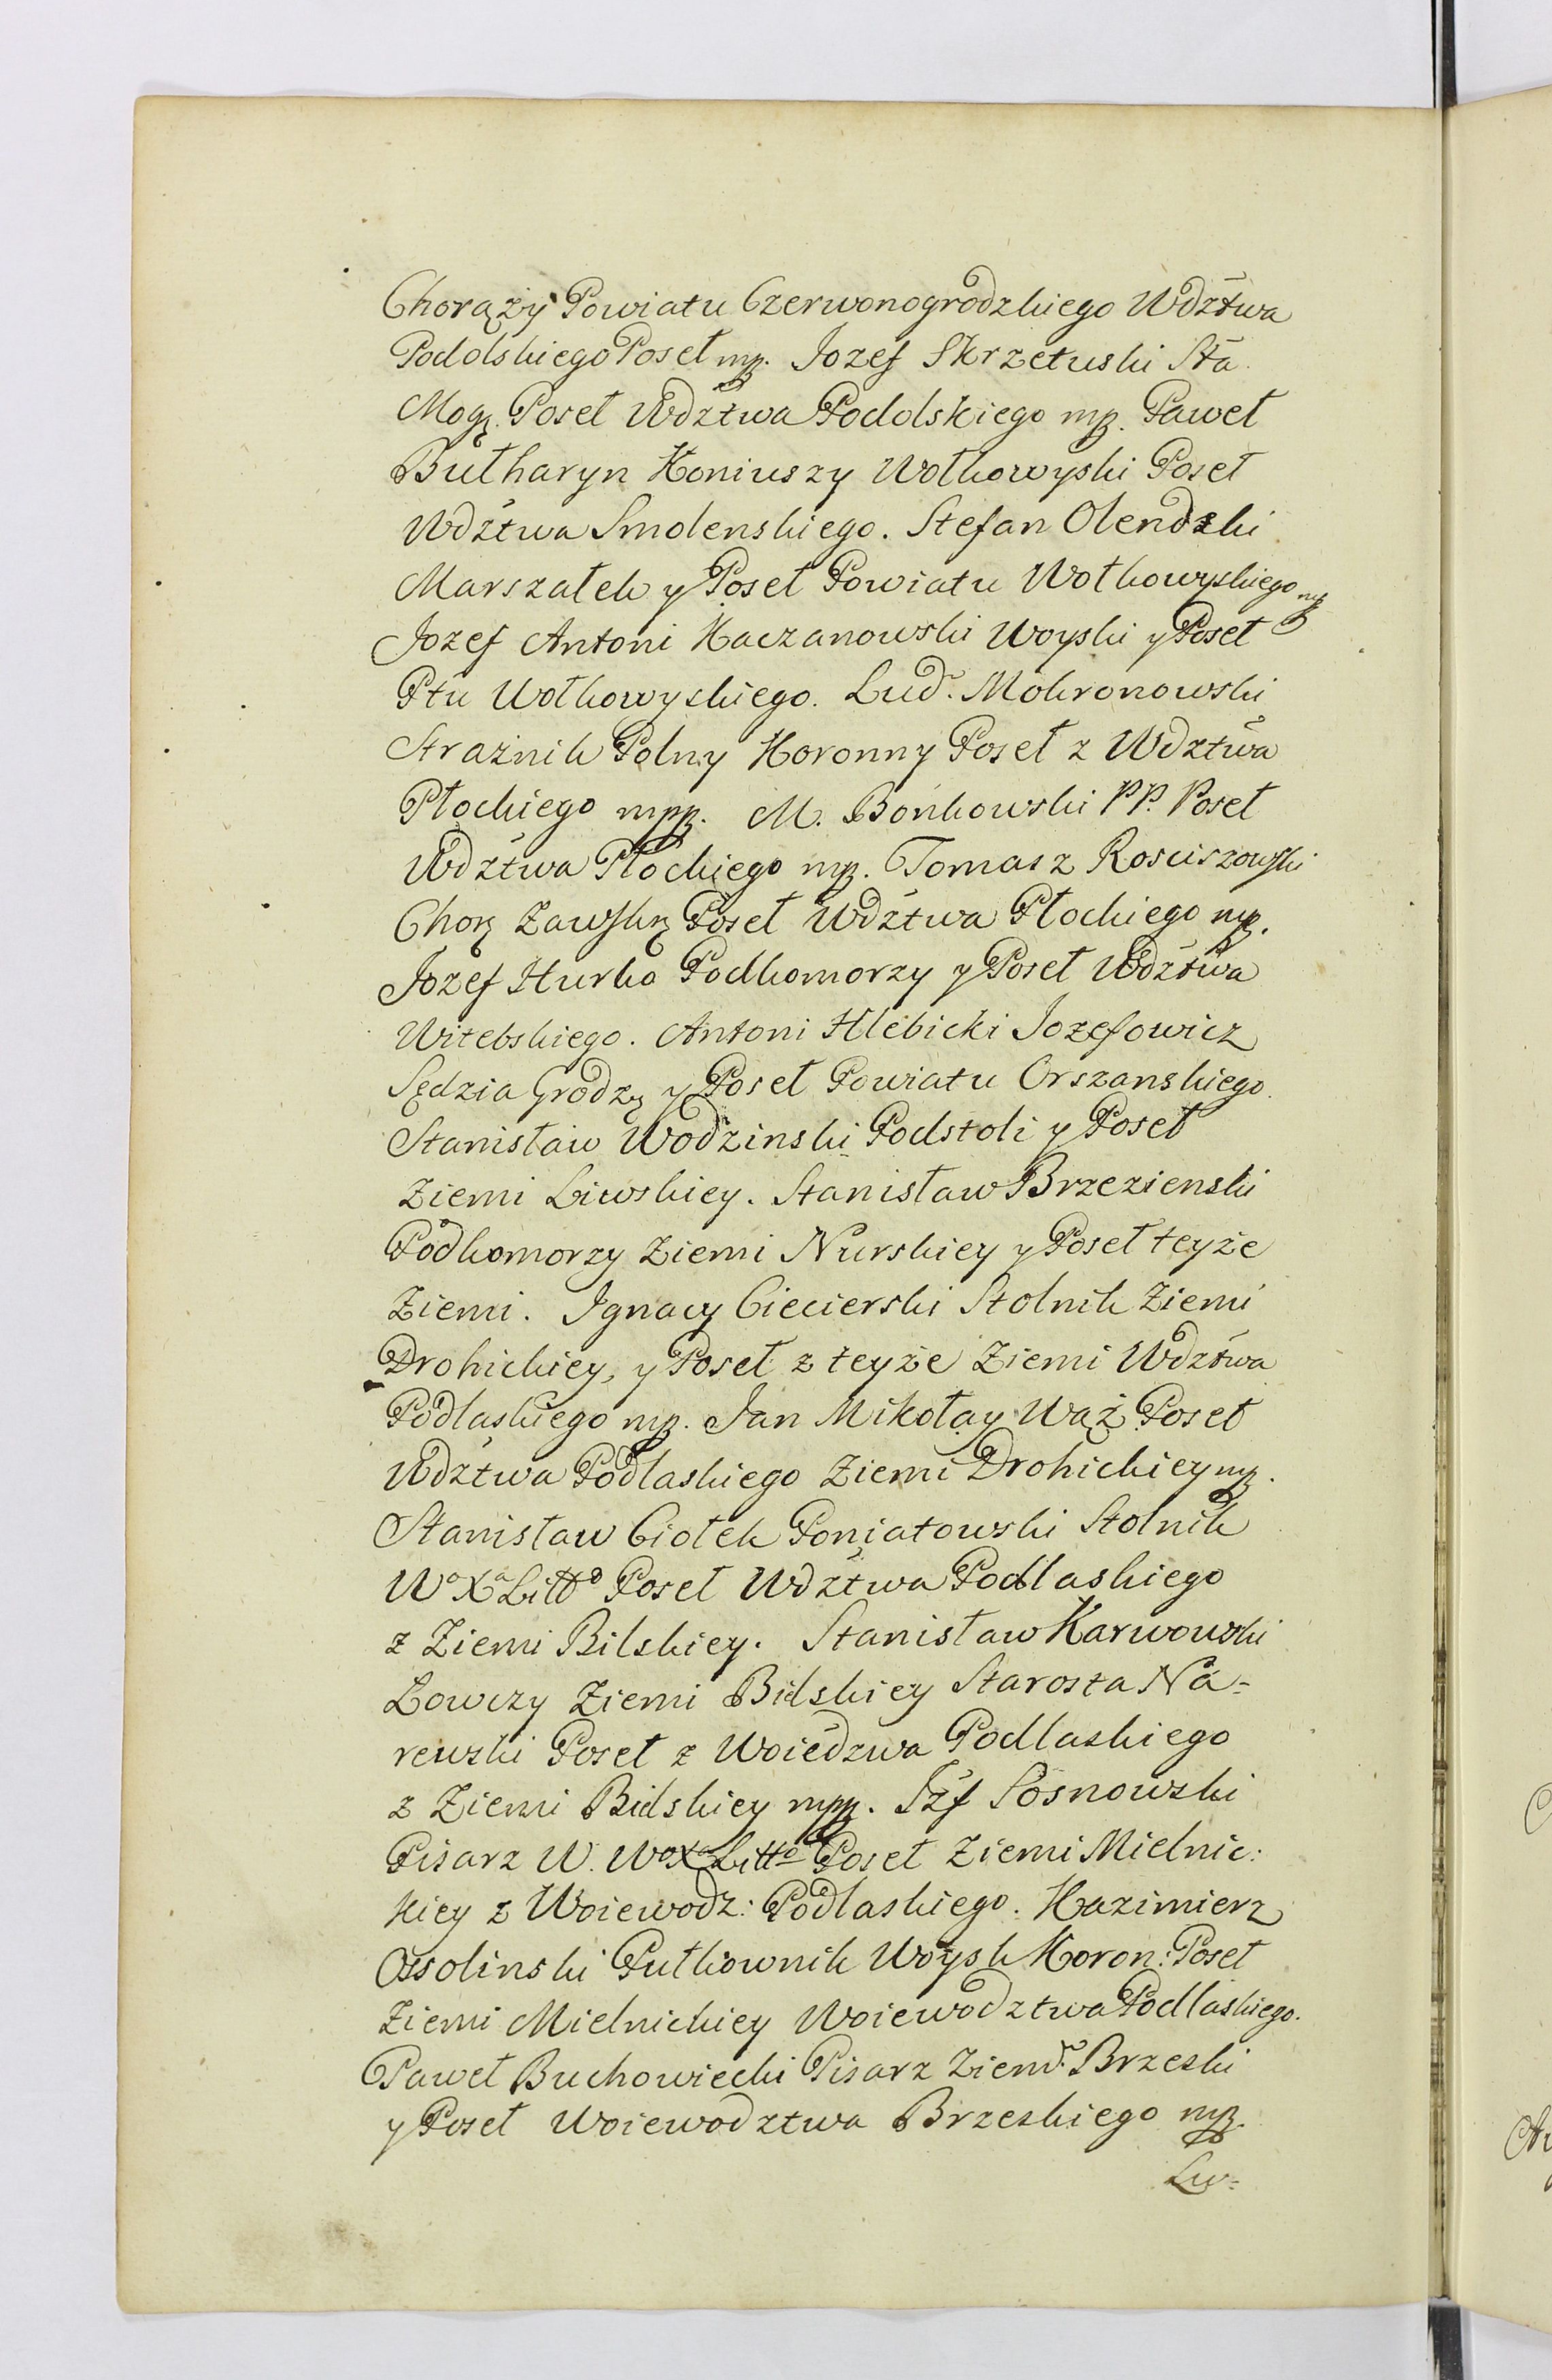 Chorąży Powiatu Czerwonogrodzkiego Wdztwa
Podolskiego Poseł mp. Jozef Skrzetuski Sta
Mog. Poseł Wdztwa Podolskiego mp. Paweł
Bułharyn Koniuszy Wołkowyski Poseł
Wdztwa Smolenskiego. Stefan Olendzki
Marszałek y Poseł Powiatu Wołkowyskiego mp
Jozef Antoni Kaczanowski Woyski y Poseł
Ptu Wołkowyskiego. Lud. Mokronowski
Strażnik Polny Koronny Poseł z Wdztwa
Płockiego mpp. M. Bońkowski PP. Poseł
Wdztwa Płockiego mp. Tomasz Rosciszowski
Chorż Zawskrż Poseł Wdztwa Płockiego mp.
Jozef Hurko Podkomorzy y Poseł Wdztwa
Witebskiego. Antoni Hlebicki Jozefowicz
Sędzia Grodz. y Poseł Powiatu Orszanskiego
Stanisław Wodzinski Podstoli y Poseł
Ziemi Liwskiey. Stanisław Brzezienski
Podkomorzy Ziemi Nurskiey y Poseł teyże
Ziemi. Ignacy Ciecierski Stolnik Ziemi
Drohickiey, y Poseł z teyże Ziemi Wdztwa
Podlaskiego mp. Jan Mikołay Wąż Poseł
Wdztwa Podlaskiego Ziemi Drohickiey mp.
Stanisław Ciołek Poniatowski Stolnik
Wo Xa Litto Poseł Wdztwa Podlaskiego
z Ziemi Bilskiey. Stanisław Karwowski
Łowczy Ziemi Bielskiey Starosta Na-
rewski Poseł z Woiedzwa Podlaskiego
z Ziemi Bielskiey mpp. Jzf Sosnowski
Pisarz W. Wo Xa Litto Poseł Ziemi Mielnic:
kiey z Woiewodz: Podlaskiego. Kazimierz
Ossolinski Pułkownik Woysk Koron: Poseł
Ziemi Mielnickiey Woiewodztwa Podlaskiego.
Paweł Buchowiecki Pisarz Ziem. Brzeski
y Poseł Woiewodztwa Brzeskiego mp.
Lu-